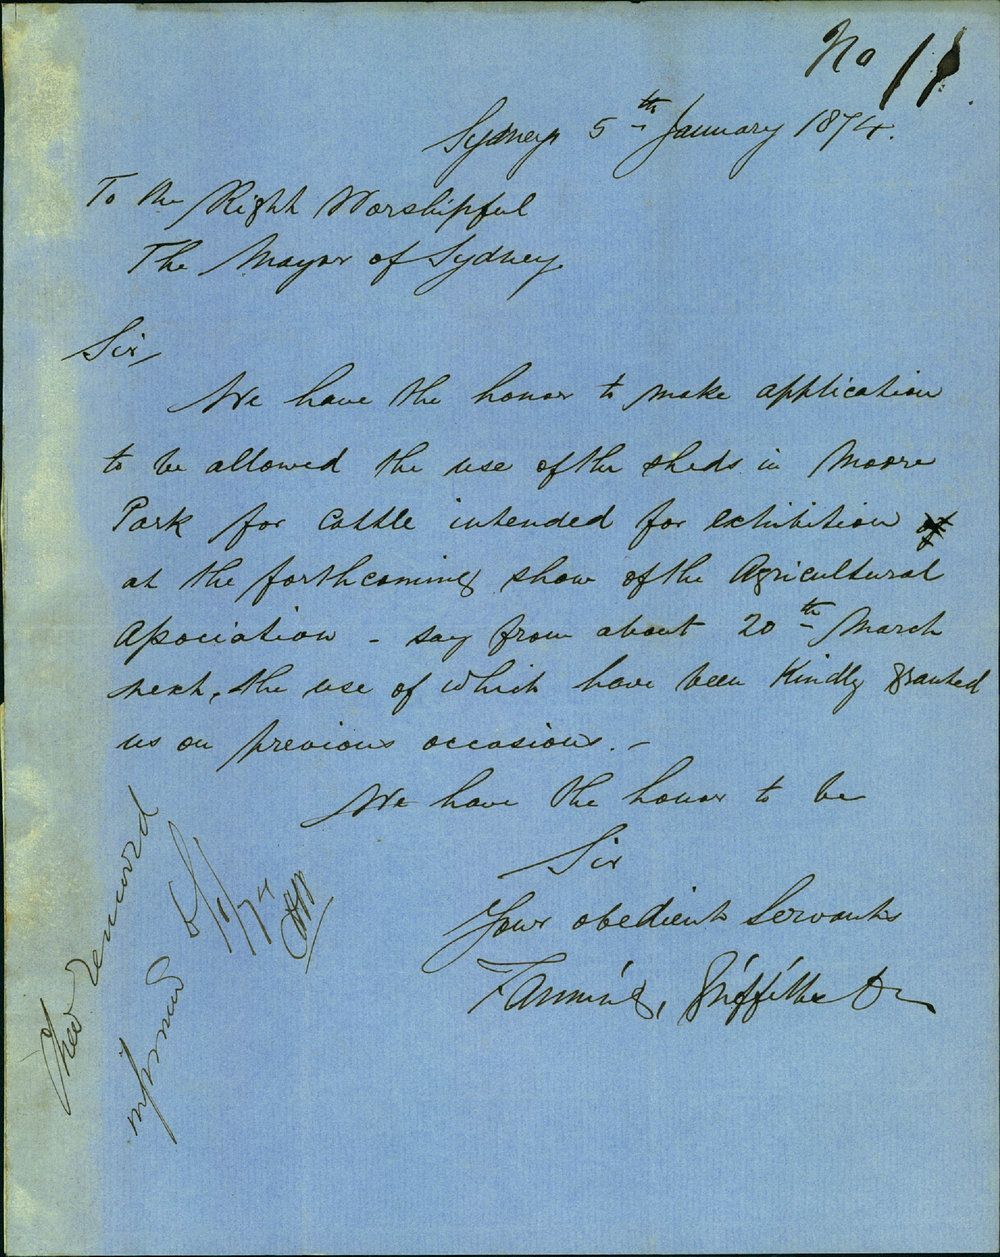 No 11.
Sydney 5th January 1874.
To the Right Worshipful
The Mayor of Sydney
Sir,
We have the honor to make application
to be allowed the use of the sheds in Moore
Park for Cattle intended for exhibition of
at the forthcoming show of the Agricultural
Association - say from about 20th March
next, the use of which have been Kindly granted
us on previous occasions. -
We have the honor to be
Sir
Your obedient Servants
Fanning, Griffiths & Co
informed 5/1/74